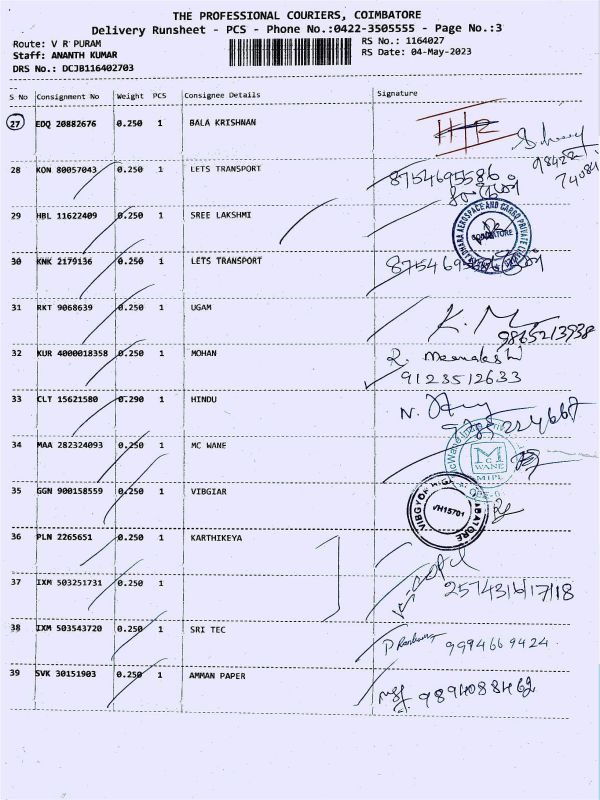 THE PROFESSIONAL COURIERS, COIMBATORE
Delivery Runsheet - PCS - Phone No.:0422-3505555 - Page No.:3
Route: V R PURAM
RS No.: 1164027
Staff: ANANTH KUMAR
RS Date: 04-May-2023
DRS No.: DCJB116402703
S No Consignment No Weight PCS Consignee Details Signature
27 EDQ 20882676 0.250 1 BALA KRISHNAN
28 KON 80057043 0.250 1 LETS TRANSPORT 8754695586
29 HBL 11622409 0.250 1 SREE LAKSHMI
30 KNK 2179136 0.250 1 LETS TRANSPORT
31 RKT 9068639 0.250 1 UGAM K. M 9865213938
32 KUR 4000018358 0.250 1 MOHAN R. Meenakshi
9123512633
33 CLT 15621580 0.290 1 HINDU
34 MAA 282324093 0.250 1 MC WANE
McWANE
MIPL
35 GGN 900158559 0.250 1 VIBGIAR
VH15701
36 PLN 2265651 0.250 1 KARTHIKEYA
37 IXM 503251731 0.250 1 2574316/17/18
38 IXM 503543720 0.250 1 SRI TEC 9994669424
39 SVK 30151903 0.250 1 AMMAN PAPER 9894088462